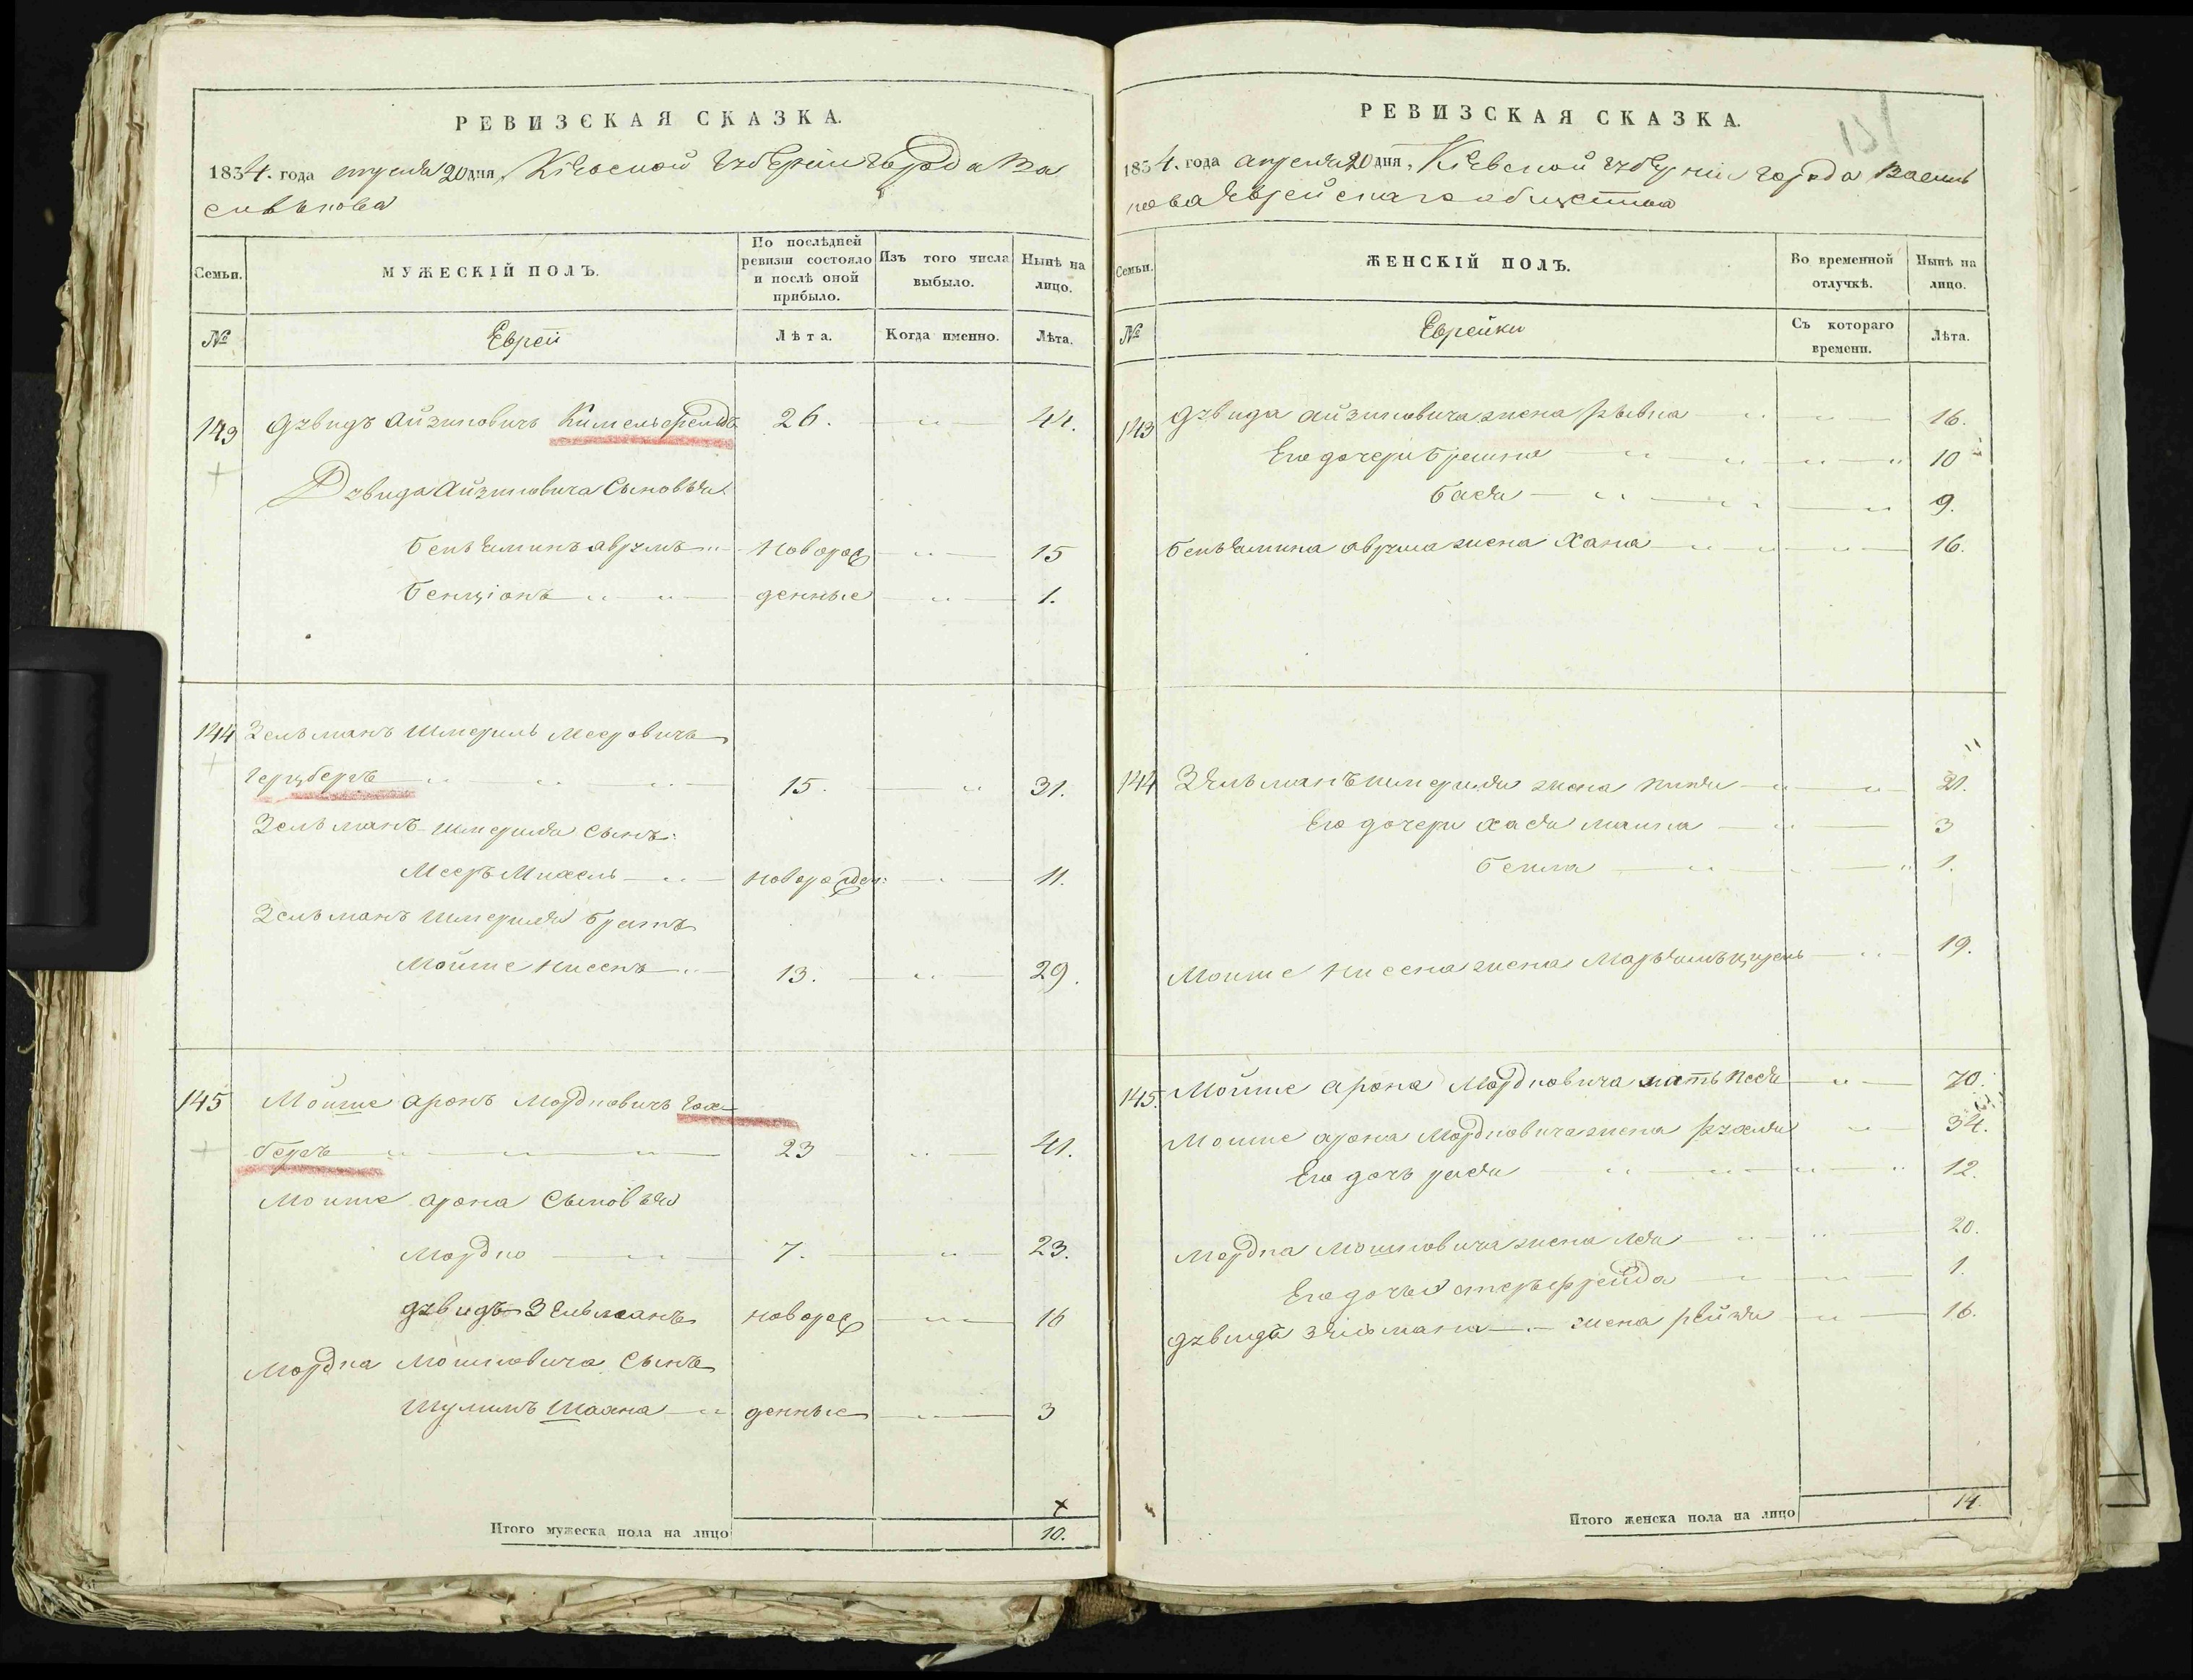 РЕВИЗСКАЯ СКАЗКА.
1834. года апреля 20 дня, Кіевской Губерніи города Ва
силькова
Семьи.
МУЖЕСКІЙ ПОЛЪ.
По послѣдней ревизіи состояло и послѣ оной прибыло.
Изъ того числа выбыло.
Нынѣ на лицо.
№
Евреи
Лѣта.
Когда именно.
Лѣта.
143 Дувидъ Айзиковичъ Кимельфельдъ 26. 44.
Дувида Айзиковича Сыновья
Беньяминъ Аврумъ Новорож 15
Бенціонъ денные 1.
144 Зельманъ Шмериль Мееровичъ
Герцбергъ 15. 31.
Зельманъ Шмериля Сынъ:
Мееръ Михель новорожден: 11.
Зельманъ Шмериля братъ
Мойше Нисенъ 13. 29.
145 Мойше Аронъ Мордковичъ Гох
бергъ 23 41.
Мошке Арона Сыновья
Мордко 7. 23.
Дувидъ Зельманъ новорож 16
Мордка Мошковича Сынъ
Шулимъ Шахна денные 3
Итого мужеска пола на лицо 10.
РЕВИЗСКАЯ СКАЗКА.
151
1834. года апреля 20 дня, Кіевской Губерніи города Василь
кова Еврейскаго общества
Семьи.
ЖЕНСКІЙ ПОЛЪ.
Во временной отлучкѣ.
Нынѣ на лицо.
№
Еврейки
Съ котораго времени.
Лѣта.
143 Дувида Айзиковича жена Рывка 16.
Его дочери 10
Бася 9.
Беньямина Аврума жена Хана 16.
144 Зельманъ Шмериля жена 31.
Его дочери Хася Малка 3
Бейла 1.
Мошке Нисена жена 19.
145. Мойше Арона Мордковича мать Песя 70.
Мошке Арона Мордковича жена Рухля 34.
Его дочь 12.
Мордка Мошковича жена Лея 20.
Его дочь Эстеръ Фрейда 1.
Дувида Зельмана жена Рейзя 16.
Итого женска пола на лицо 14.